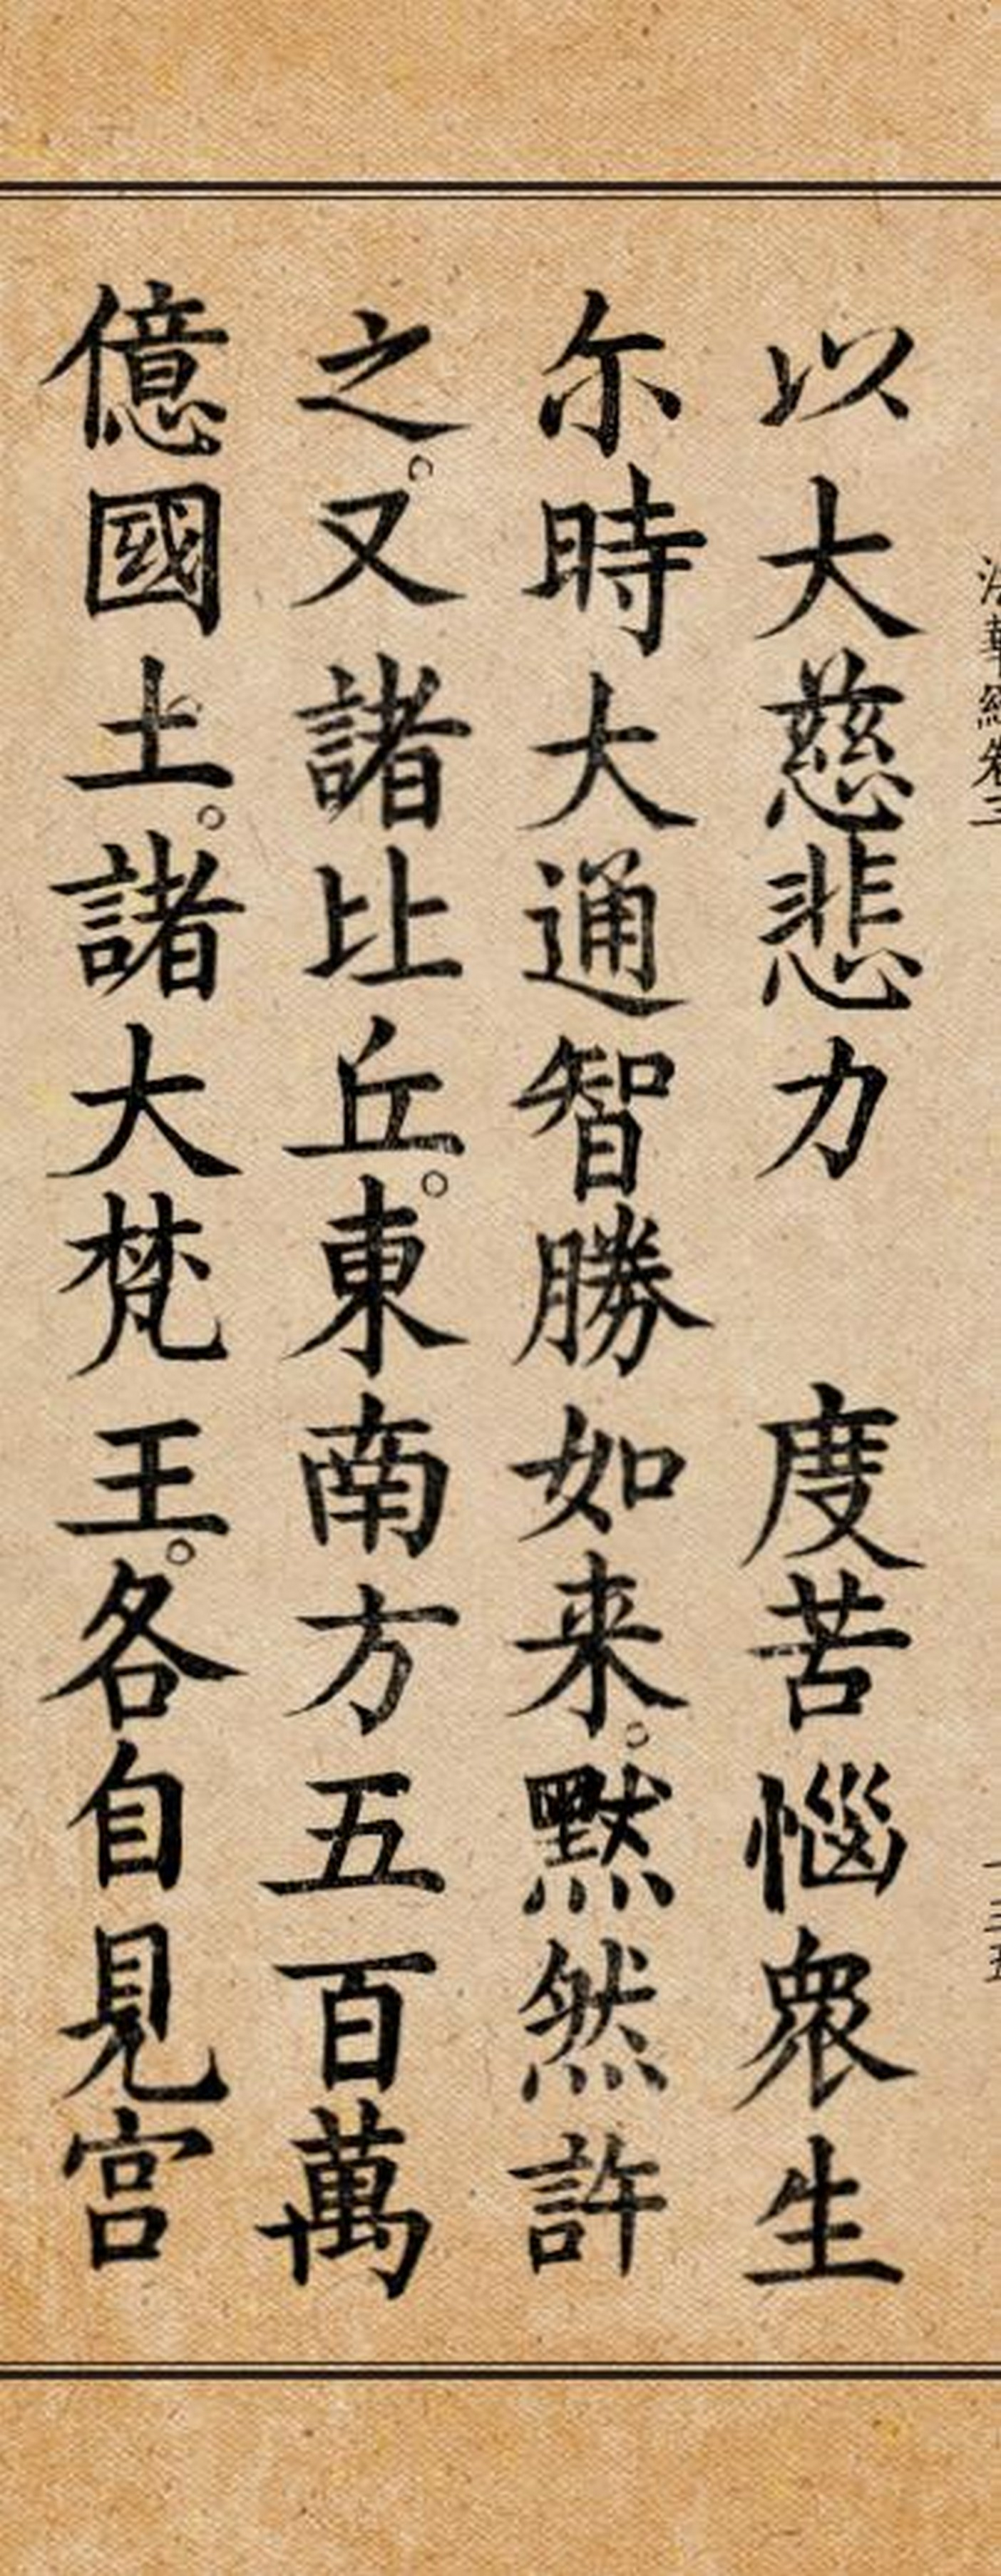 法華經卷三
以大慈悲力　度苦惱衆生
尓時大通智勝如来。默然許
之。又諸比丘。東南方五百萬
億國土。諸大梵王。各自見宮